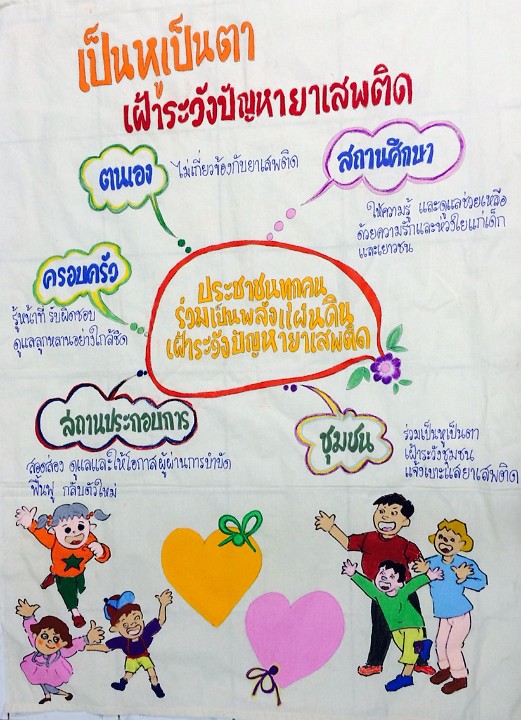 เป็นหูเป็นตา
เฝ้าระวังปัญหายาเสพติด
ตนเอง
ไม่เกี่ยวข้องกับยาเสพติด
สถานศึกษา
ให้ความรู้ และดูแลช่วยเหลือ
ด้วยความรักและห่วงใยแก่เด็ก
และเยาวชน
ครอบครัว
รู้หน้าที่ รับผิดชอบ
ดูแลลูกหลานอย่างใกล้ชิด
ประชาชนทุกคน
ร่วมเป็นพลังแผ่นดิน
เฝ้าระวังปัญหายาเสพติด
สถานประกอบการ
สอดส่อง ดูแลและให้โอกาสผู้ผ่านการบำบัด
ฟื้นฟู กลับตัวใหม่
ชุมชน
ร่วมเป็นหูเป็นตา
เฝ้าระวังชุมชน
แจ้งเบาะแสยาเสพติด